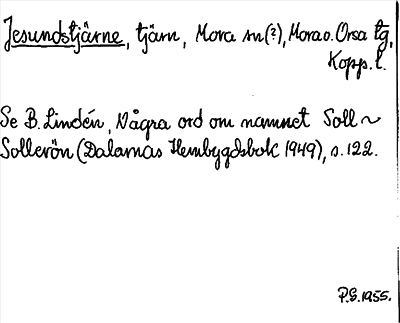 Jesundstjärne, tjärn, Mora sn(?), Mora o. Orsa tg,
Kopp. l.
Se B. Lindén, Några ord om namnet Soll~
Sollerön (Dalarnas Hembygdsbok 1949), s. 122.
P.G. 1955.